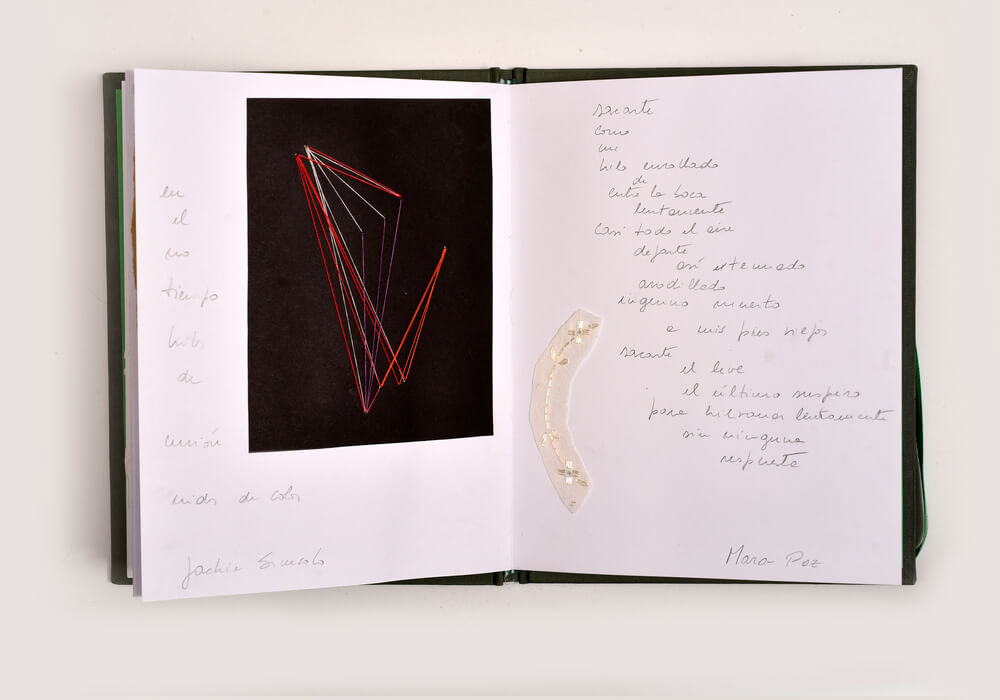 en
el
no
tiempo
hilos
de
unión
nidos de color
Jackie
sacarte
como
un
hilo enrollado
de
entre la boca
lentamente
casi todo el aire
dejarte
así extenuado
arrodillado
ninguno muerto
a mis pies viejos
sacarte
el leve
el último suspiro
para hilvanar lentamente
sin ninguna
respuesta
Mara Paz